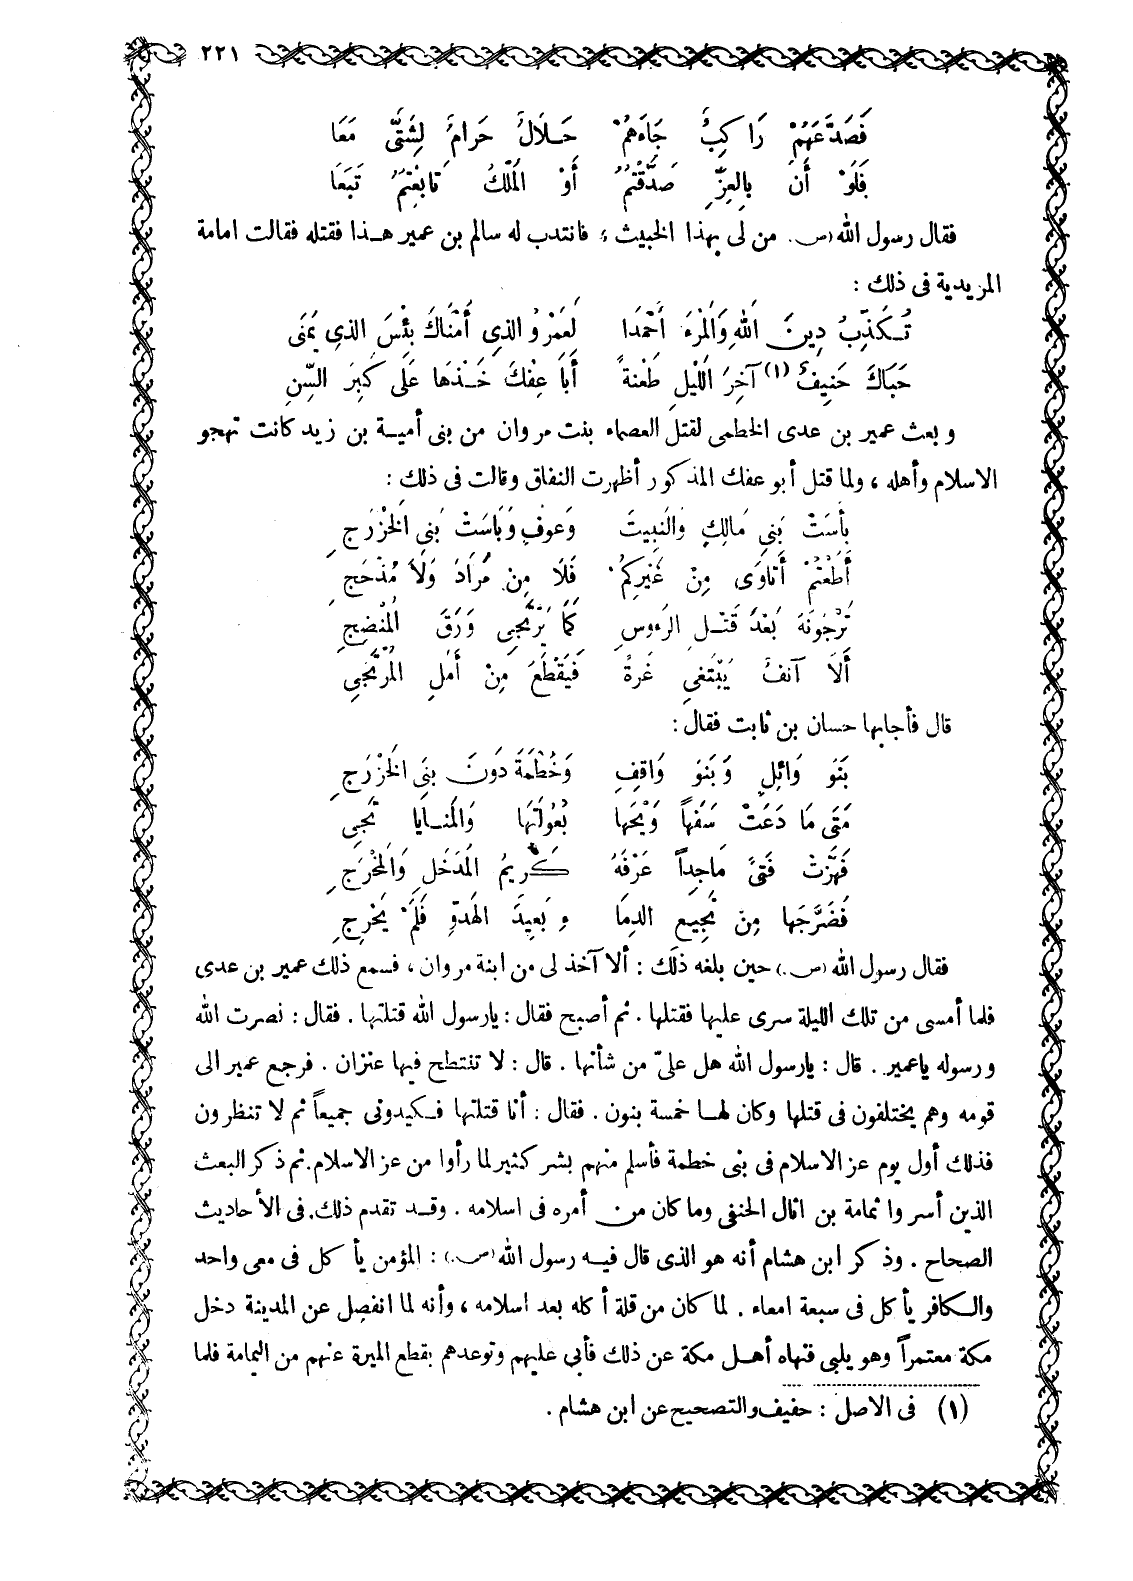 ٢٢١
فَصَدَّعَهُمْ رَاكِبٌ جَاءَهُمْ حَلَالٌ حَرَامٌ لِشَتَّى مَعَا
فَلَوْ أَنَّ بِالعِزِّ صَدَّقْتُمُ أَوْ الْمُلْكُ تَابَعْتُمُ تَبَعَا
فقال رسول الله (ص). من لى بهذا الخبيث ؟ فانتدب له سالم بن عمير هذا فقتله فقالت امامة
المزيدية فى ذلك :
تُكَذِّبُ دِينَ اللهِ وَالْمَرْءَ أَحْمَدَا لَعَمْرُو الذِي أَمْنَاكَ بِئْسَ الذِي يَمْنَى
حَبَاكَ حَنِيفٌ (١) آخِرَ اللَّيْلِ طَعْنَةً أَبَا عَفَكَ خُذْهَا عَلَى كِبَرِ السِّنِ
وبعث عمير بن عدى الخطمى لقتل العصماء بنت مروان من بنى أمية بن زيد كانت تهجو
الاسلام وأهله ، ولما قتل أبو عفك المذكور أظهرت النفاق وقالت فى ذلك :
بأَسَتْ بَنِي مَالِكٍ وَالنَبِيتَ وَعَوفٍ وَبَاسَتْ بَنِى الْخَزْرَجِ
أَطَعْتُمْ أَتَاوَى مِنْ غَيْرِكُمْ فَلَا مِنْ مُرَادَ وَلَا مُذْحَجِ
تَرْجُونَهُ بَعْدَ قَتْلِ الرَءُوسِ كَمَا يُرْتَجَى وَرَقَ الْمُنْضِجِ
أَلَا آنَفٌ يَبْتَغِي غَرةً فَيَقْطَعَ مِنْ أَمَلِ الْمُرْتَجِى
قال فأجابها حسان بن ثابت فقال :
بَنَو وَائِلٍ وَبَنَو وَاقِفٍ وَخُطْمَةَ دُونَ بَنِى الْخَزْرَجِ
مَتَى مَا دَعَتْ سَفَهاً وَيْحَها بُعُولَتَها وَالْمَنَايَا تَجِى
فَهَزَّتْ فَتىً مَاجِداً عَرْفَهُ كَرِيمُ الْمَدَخَلِ وَالْمَخْرَجِ
فَضَرَّجَها مِنْ نَجِيعِ الدِمَا وبَعِيدَ الْهُدوِّ فَلَمْ يَخْرجِ
فقال رسول الله (ص.) حين بلغه ذلك : ألا آخذ لى من ابنة مروان ، فسمع ذلك عمير بن عدى
فلما أمسى من تلك الليلة سرى عليها فقتلها . ثم أصبح فقال : يارسول الله قتلتها . فقال : نصرت الله
ورسوله ياعمير . قال : يارسول الله هل علىّ من شأنها . قال : لا تنتطح فيها عنزان . فرجع عمير الى
قومه وهم يختلفون فى قتلها وكان لها خمسة بنون . فقال : أنا قتلتها فكيدونى جميعاً ثم لا تنظرون
فذلك أول يوم عز الاسلام فى بنى خطمة فأسلم منهم بشر كثير لما رأوا من عز الاسلام. ثم ذكر البعث
الذين أسروا ثمامة بن اثال الحنفى وما كان من أمره فى اسلامه . وقد تقدم ذلك. فى الأحاديث
الصحاح . وذكر ابن هشام أنه هو الذى قال فيه رسول الله (ص.) : المؤمن يأكل فى معى واحد
والكافر يأكل فى سبعة امعاء . لما كان من قلة أكله بعد اسلامه ، وأنه لما انفصل عن المدينة دخل
مكة معتمراً وهو يلبى فنهاه أهل مكة عن ذلك فأبي عليهم وتوعدهم بقطع الميرة عنهم من اليمامة فلما
(١) فى الاصل : حفيف والتصحيح عن ابن هشام .